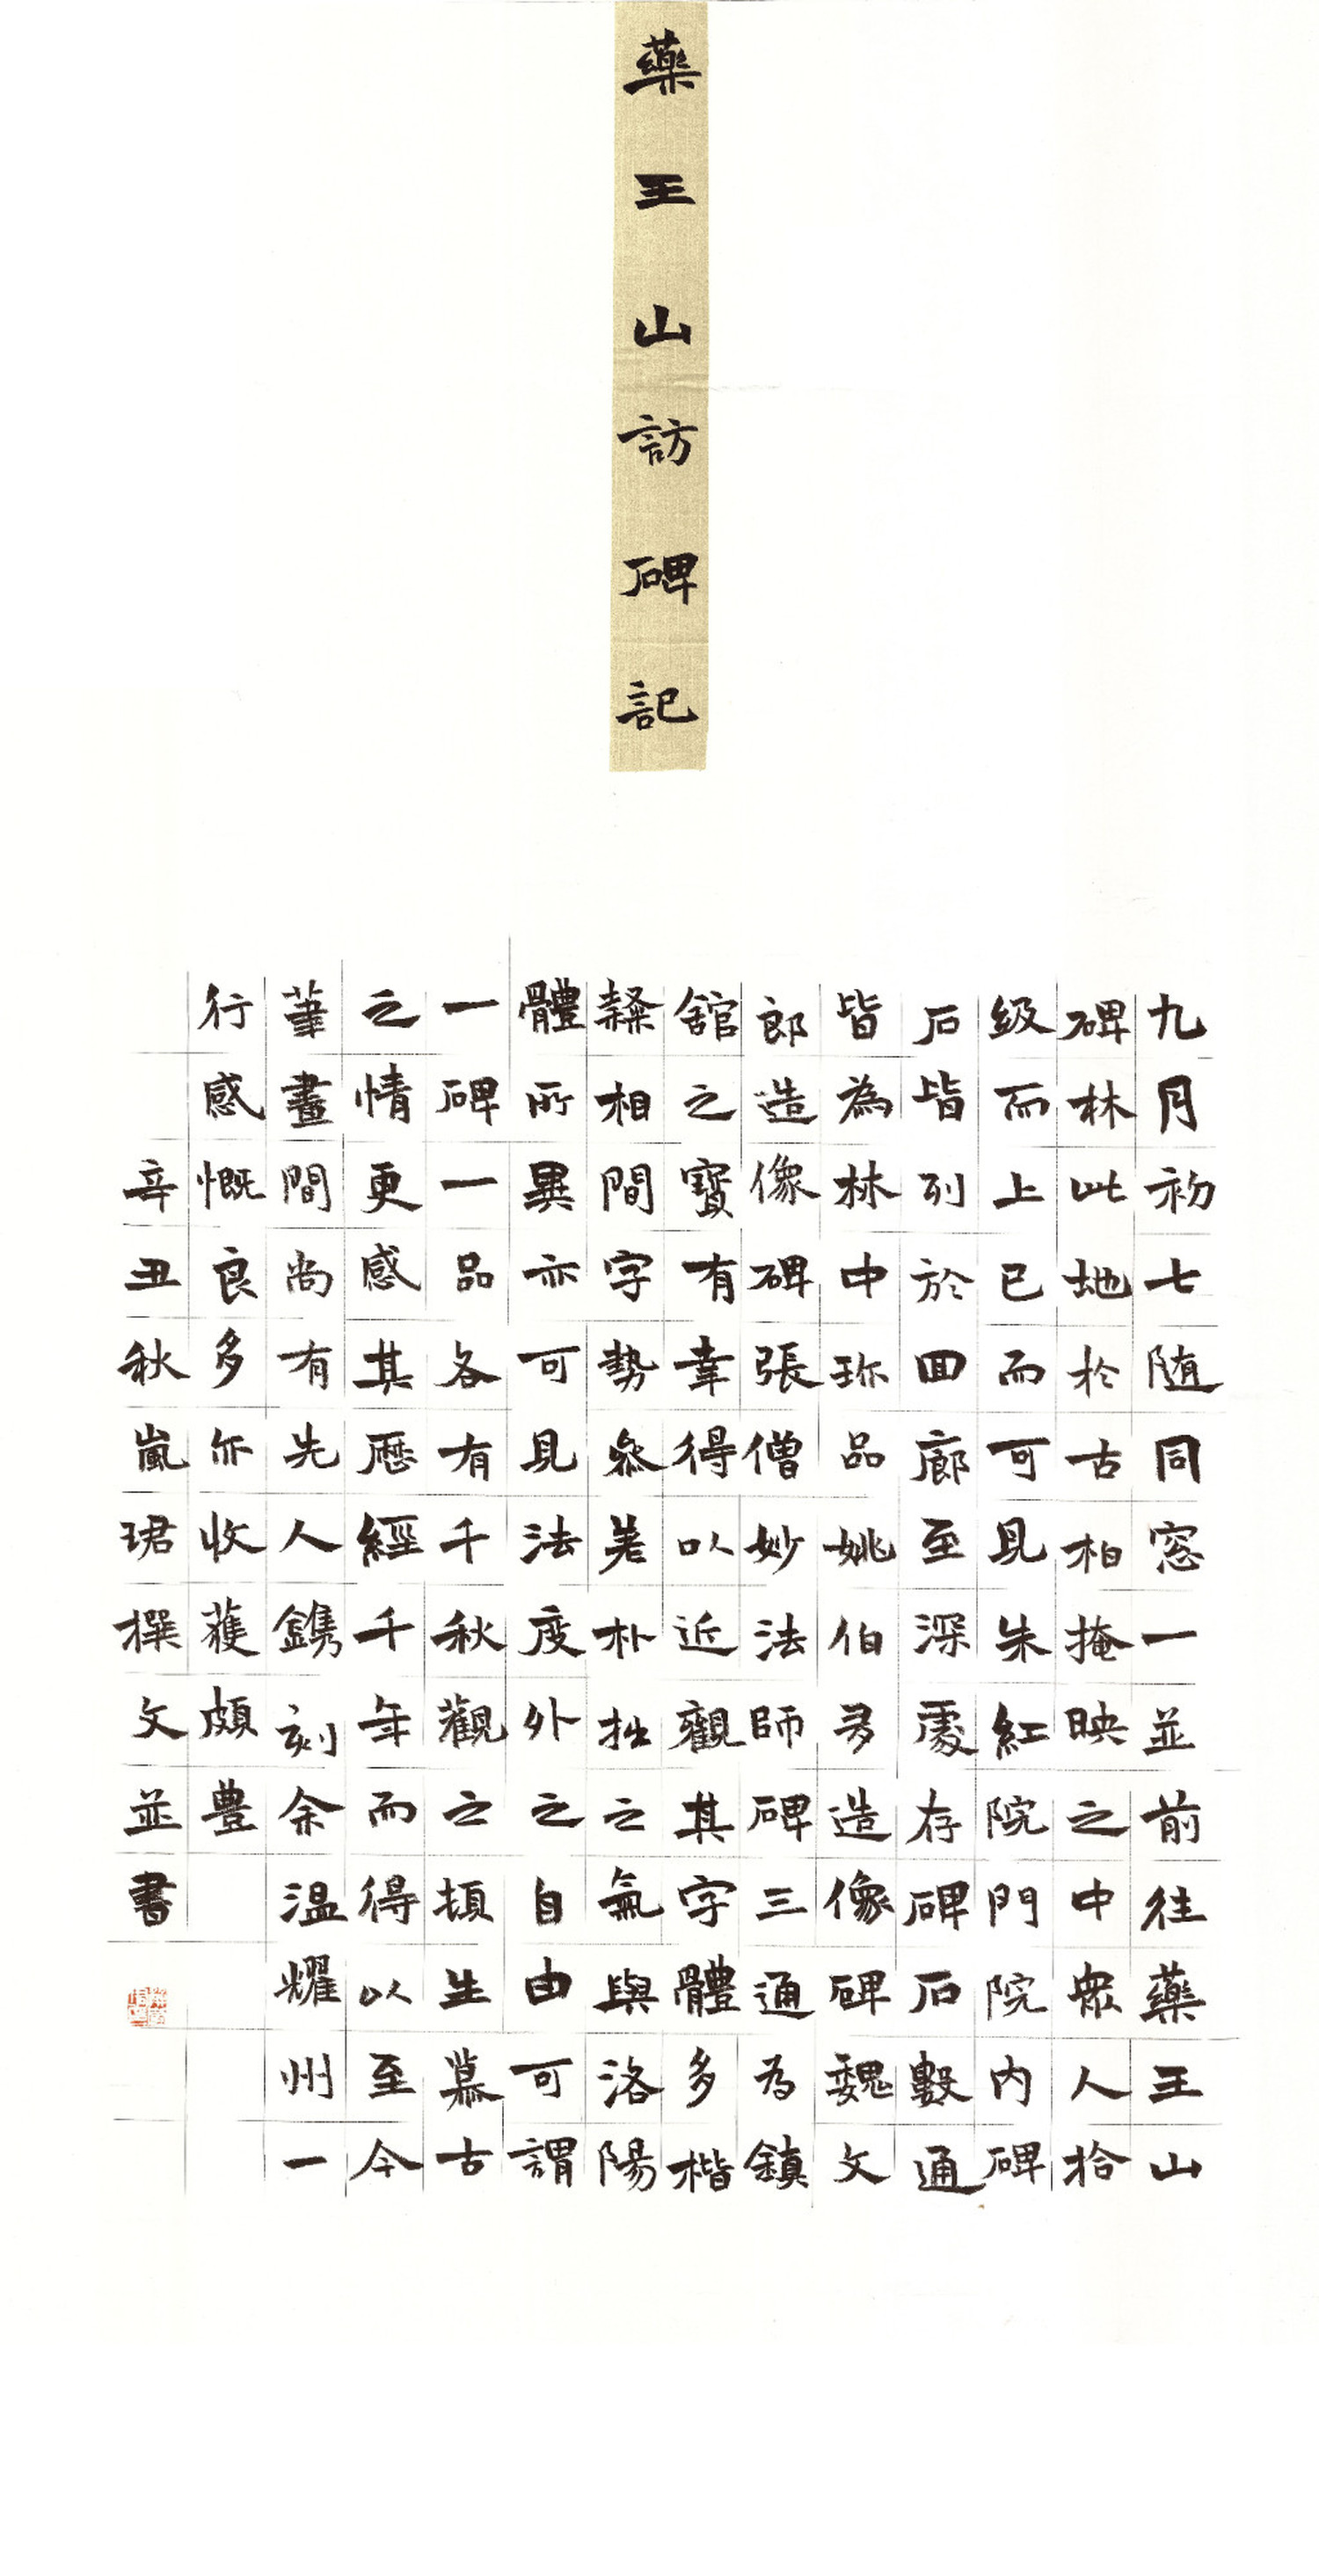 藥王山訪碑記
九月初七随同窓一並前往藥王山
碑林此地於古柏掩映之中衆人拾
级而上已而可見朱紅院門院内碑
石皆列於回廊至深處存碑石數通
皆為林中珎品姚伯多造像碑魏文
郎造像碑張僧妙法師碑三通为鎮
舘之寶有幸得以近觀其字體多楷
隸相間字勢叅差朴拙之氣與洛陽
體所異亦可見法度外之自由可謂
一碑一品各有千秋觀之頓生慕古
之情更感其歷經千年而得以至今
筆畫間尚有先人鐫刻余温耀州一
行感慨良多亦收獲頗豊
辛丑秋嵐珺撰文並書